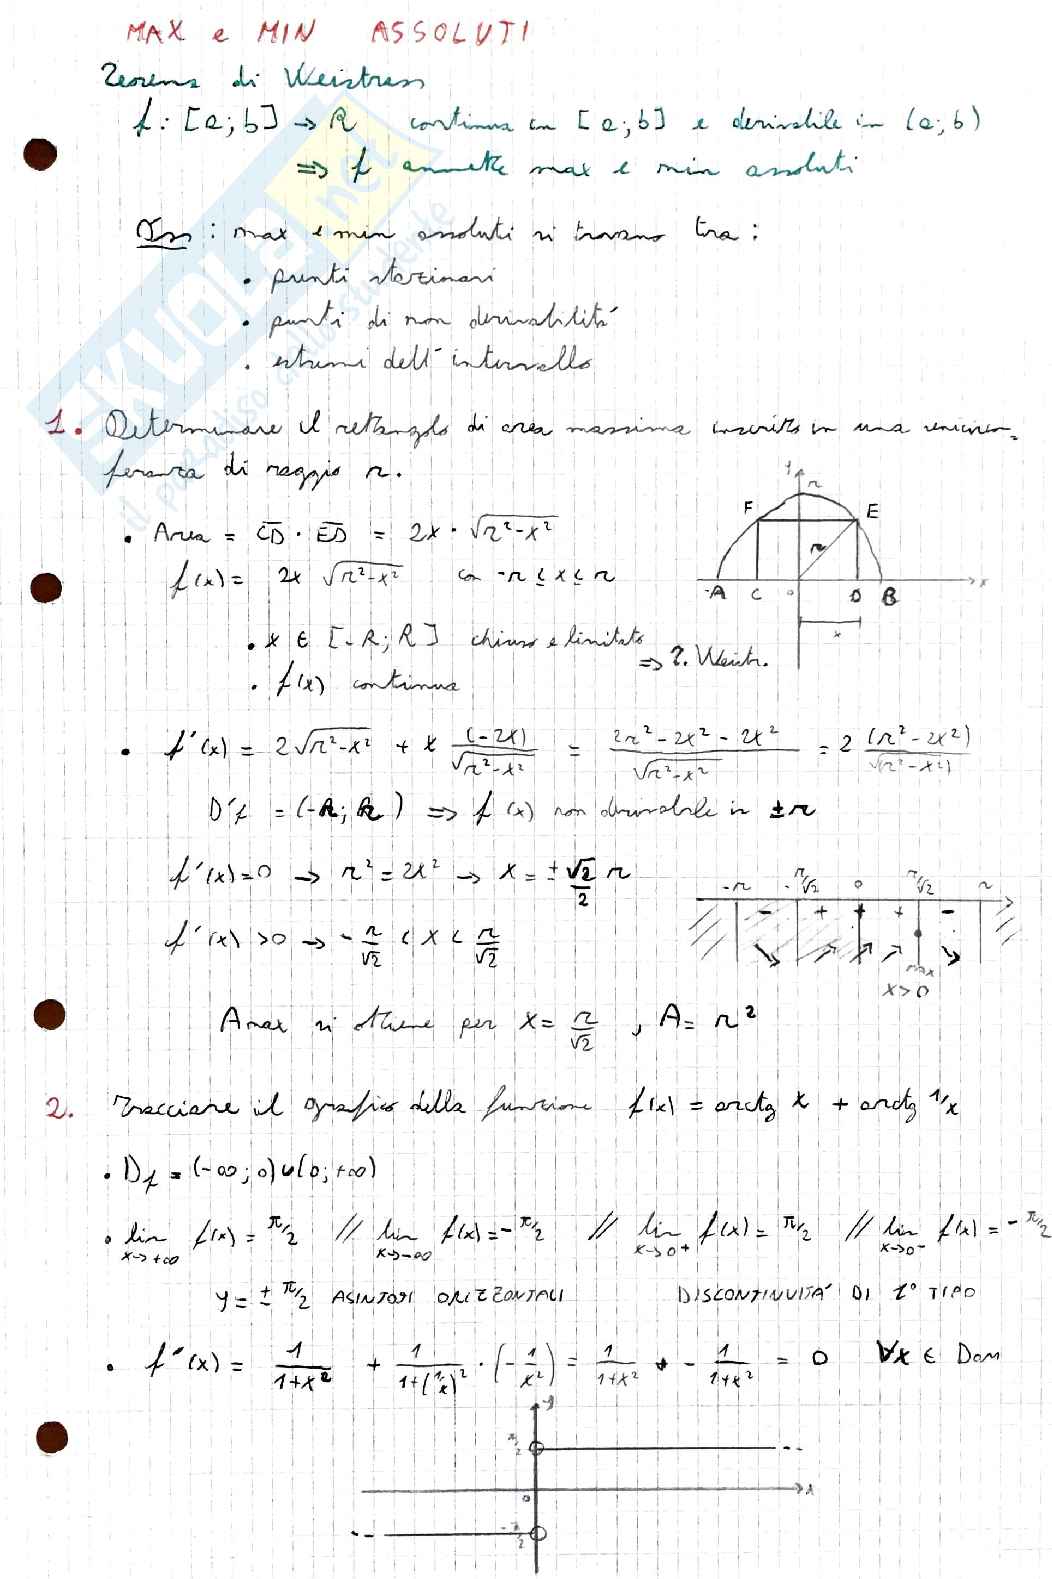 MAX e MIN ASSOLUTI
Teorema di Weistrass
f: [a;b] → R continua in [a;b] e derivabile in (a;b)
⇒ f ammette max e min assoluti
Oss: max e min assoluti si trovano tra:
• punti stazionari
• punti di non derivabilità
• estremi dell'intervallo
1. Determinare il rettangolo di area massima inscritto in una semicircon-
ferenza di raggio r.
• Area = CD · ED = 2x · √r²-x²
f(x) = 2x √r²-x² con -r ≤ x ≤ r
y r F E r -A C o D B x
x
• x ∈ [-R; R] chiuso e limitato
⇒ T. Weistr.
• f(x) continua
• f'(x) = 2√r²-x² + x (-2x)/√r²-x² = 2r²-2x²-2x²/√r²-x² = 2 (r²-2x²)/√r²-x²)
D'f = (-R; R) ⇒ f(x) non derivabile in ±r
f'(x)=0 → r²=2x² → x=±√2/2 r
-r -r/√2 0 r/√2 r
- + + + -
f'(x) >0 → -r/√2 < x < r/√2
max
x>0
Amax si ottiene per x= r/√2 , A= r²
2. Tracciare il grafico della funzione f(x) = arctg x + arctg 1/x
• Df = (-∞;0)∪(0;+∞)
• lim x→+∞ f(x) = π/2 // lim x→-∞ f(x)=-π/2 // lim x→0+ f(x)= π/2 // lim x→0- f(x) = -π/2
y= ± π/2 ASINTOTI ORIZZONTALI DISCONTINUITÁ DI 1° TIPO
• f'(x) = 1/1+x² + 1/1+(1/x)² · (-1/x²) = 1/1+x² - 1/1+x² = 0 ∀x ∈ Dom
y
π/2
o x
-π/2
SKUOLA.net
il paradiso dello studente